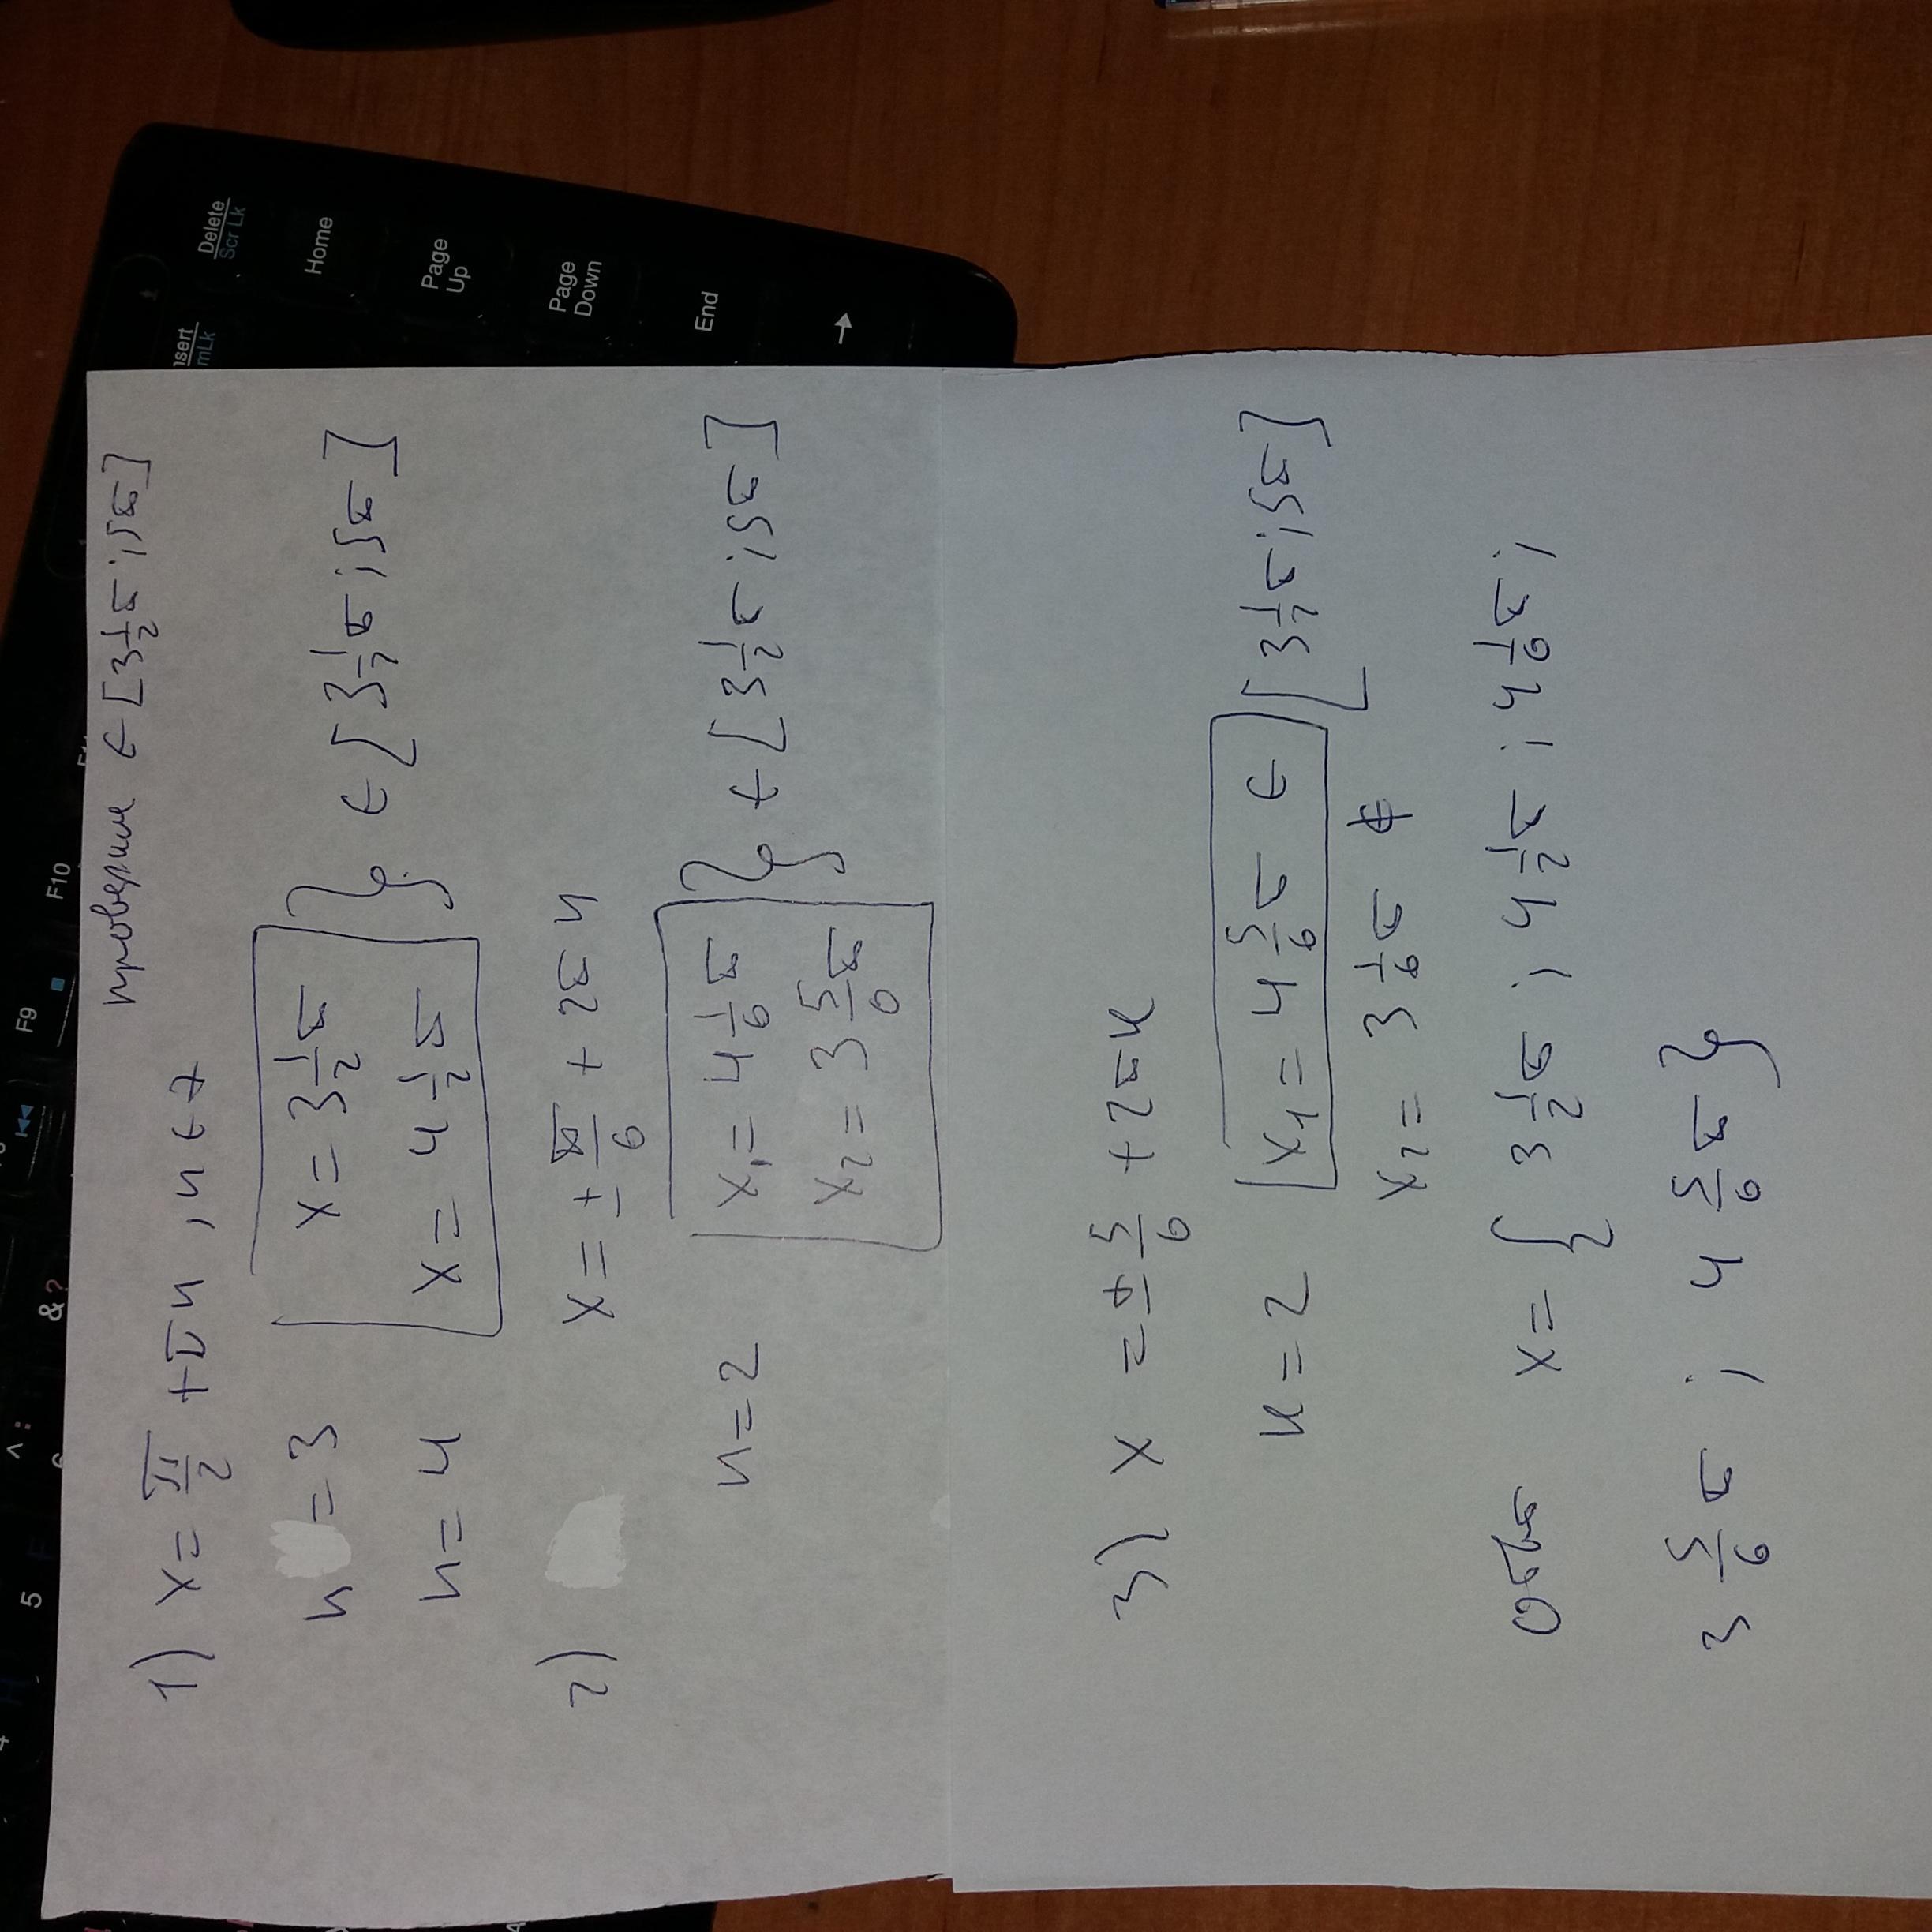 проверим ∈ [3 1/2 π; 5π]
1) x = π/2 + πn, n ∈ z
n = 3 x = 3 1/2 π
n = 4 x = 4 1/2 π } ∈ [3 1/2 π; 5π]
2) x = ± π/6 + 2πn
n = 2 x₁ = 4 1/6 π
x₂ = 3 5/6 π } ∈ [3 1/2 π; 5π]
3) x = ± 5/6 + 2πk
k = 2 x₁ = 4 5/6 π ∈ [3 1/2 π; 5π]
x₂ = 3 1/6 π ∉
x = { 3 1/2 π; 4 1/2 π; 4 1/6 π;
3 5/6 π; 4 5/6 π }
Delete
Scr Lk
Home
Page
Up
Page
Down
End
→
nsert
mLk
F10
F9
& ?
^ :
5